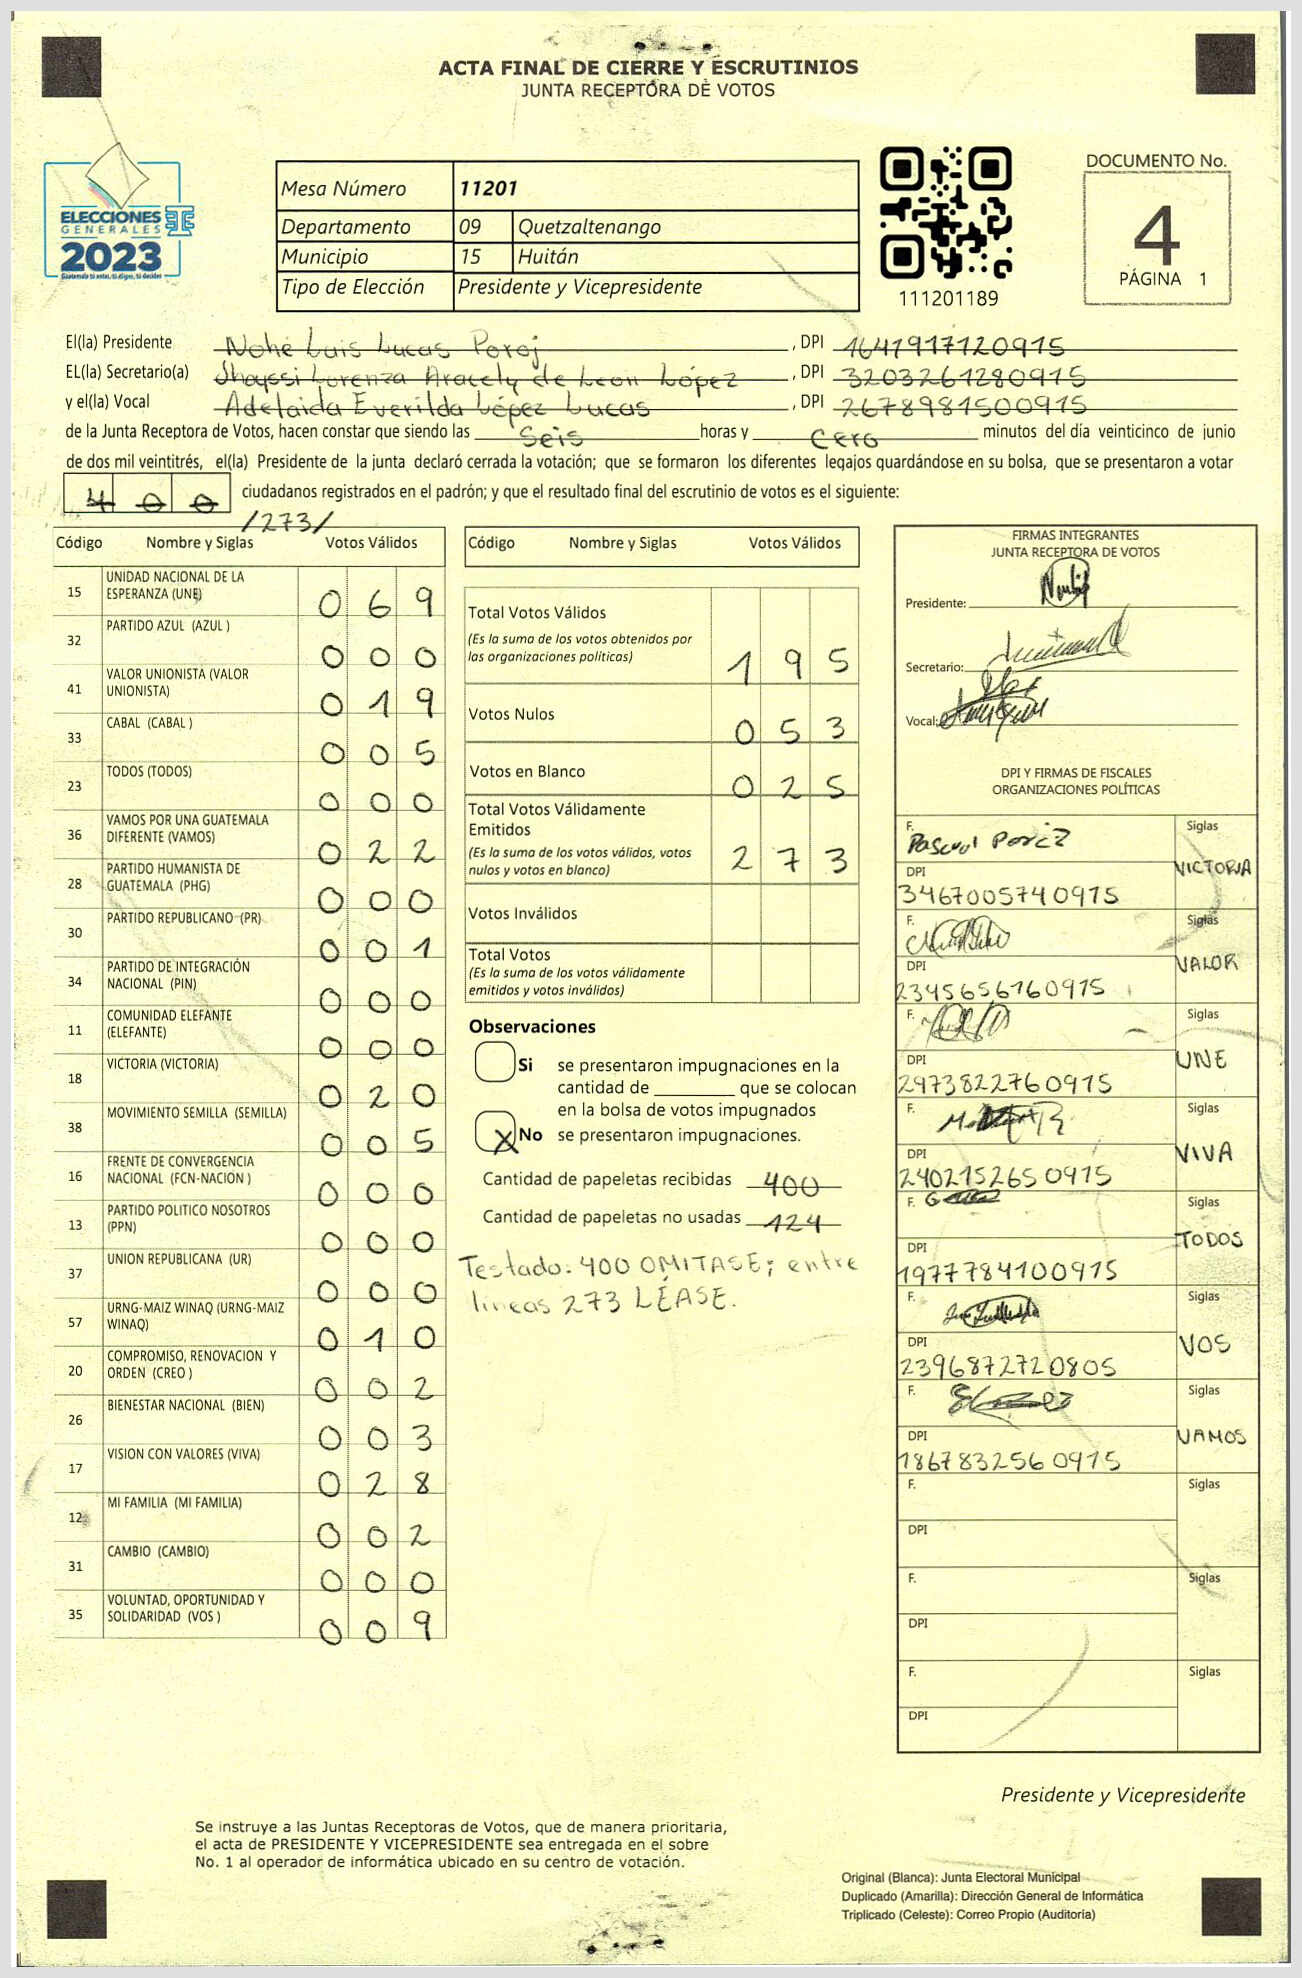 ACTA FINAL DE CIERRE Y ESCRUTINIOS
JUNTA RECEPTORA DE VOTOS
ELECCIONES
GENERALES
2023
Guatemala tú entas, tú eliges, tú decides
Mesa Número 11201
Departamento 09 Quetzaltenango
Municipio 15 Huitán
Tipo de Elección Presidente y Vicepresidente
111201189
DOCUMENTO No.
4
PÁGINA 1
El(la) Presidente Nohé Luis Lucas Poroj , DPI 1641917120915
EL(la) Secretario(a) Jhayssi Lorenza Aracely de Leon López , DPI 3203261280915
y el(la) Vocal Adelaida Everilda López Lucas , DPI 2678981500915
de la Junta Receptora de Votos, hacen constar que siendo las Seis horas y Cero minutos del día veinticinco de junio
de dos mil veintitrés, el(la) Presidente de la junta declaró cerrada la votación; que se formaron los diferentes legajos guardándose en su bolsa, que se presentaron a votar
400 ciudadanos registrados en el padrón; y que el resultado final del escrutinio de votos es el siguiente:
/273/
Código Nombre y Siglas Votos Válidos
15 UNIDAD NACIONAL DE LA ESPERANZA (UNE) 0 6 9
32 PARTIDO AZUL (AZUL ) 0 0 0
41 VALOR UNIONISTA (VALOR UNIONISTA) 0 1 9
33 CABAL (CABAL ) 0 0 5
23 TODOS (TODOS) 0 0 0
36 VAMOS POR UNA GUATEMALA DIFERENTE (VAMOS) 0 2 2
28 PARTIDO HUMANISTA DE GUATEMALA (PHG) 0 0 0
30 PARTIDO REPUBLICANO (PR) 0 0 1
34 PARTIDO DE INTEGRACIÓN NACIONAL (PIN) 0 0 0
11 COMUNIDAD ELEFANTE (ELEFANTE) 0 0 0
18 VICTORIA (VICTORIA) 0 2 0
38 MOVIMIENTO SEMILLA (SEMILLA) 0 0 5
16 FRENTE DE CONVERGENCIA NACIONAL (FCN-NACION ) 0 0 0
13 PARTIDO POLITICO NOSOTROS (PPN) 0 0 0
37 UNION REPUBLICANA (UR) 0 0 0
57 URNG-MAIZ WINAQ (URNG-MAIZ WINAQ) 0 1 0
20 COMPROMISO, RENOVACION Y ORDEN (CREO ) 0 0 2
26 BIENESTAR NACIONAL (BIEN) 0 0 3
17 VISION CON VALORES (VIVA) 0 2 8
12 MI FAMILIA (MI FAMILIA) 0 0 2
31 CAMBIO (CAMBIO) 0 0 0
35 VOLUNTAD, OPORTUNIDAD Y SOLIDARIDAD (VOS ) 0 0 9
Código Nombre y Siglas Votos Válidos
Total Votos Válidos
(Es la suma de los votos obtenidos por
las organizaciones políticas) 1 9 5
Votos Nulos 0 5 3
Votos en Blanco 0 2 5
Total Votos Válidamente
Emitidos
(Es la suma de los votos válidos, votos
nulos y votos en blanco) 2 7 3
Votos Inválidos
Total Votos
(Es la suma de los votos válidamente
emitidos y votos inválidos)
Observaciones
Si se presentaron impugnaciones en la
cantidad de ________ que se colocan
en la bolsa de votos impugnados
X No se presentaron impugnaciones.
Cantidad de papeletas recibidas 400
Cantidad de papeletas no usadas 124
Testado: 400 OMITASE; entre
líneas 273 LÉASE.
FIRMAS INTEGRANTES
JUNTA RECEPTORA DE VOTOS
Presidente:
Secretario:
Vocal:
DPI Y FIRMAS DE FISCALES
ORGANIZACIONES POLÍTICAS
F. Siglas
VICTORIA
DPI
3467005740915
F. Siglas
VALOR
DPI
2345656160915
F. Siglas
UNE
DPI
2973822760915
F. Siglas
VIVA
DPI
2402152650915
F. Siglas
TODOS
DPI
1977784100915
F. Siglas
VOS
DPI
2396872720805
F. Siglas
VAMOS
DPI
1867832560915
F. Siglas
DPI
F. Siglas
DPI
F. Siglas
DPI
Presidente y Vicepresidente
Se instruye a las Juntas Receptoras de Votos, que de manera prioritaria,
el acta de PRESIDENTE Y VICEPRESIDENTE sea entregada en el sobre
No. 1 al operador de informática ubicado en su centro de votación.
Original (Blanca): Junta Electoral Municipal
Duplicado (Amarilla): Dirección General de Informática
Triplicado (Celeste): Correo Propio (Auditoría)